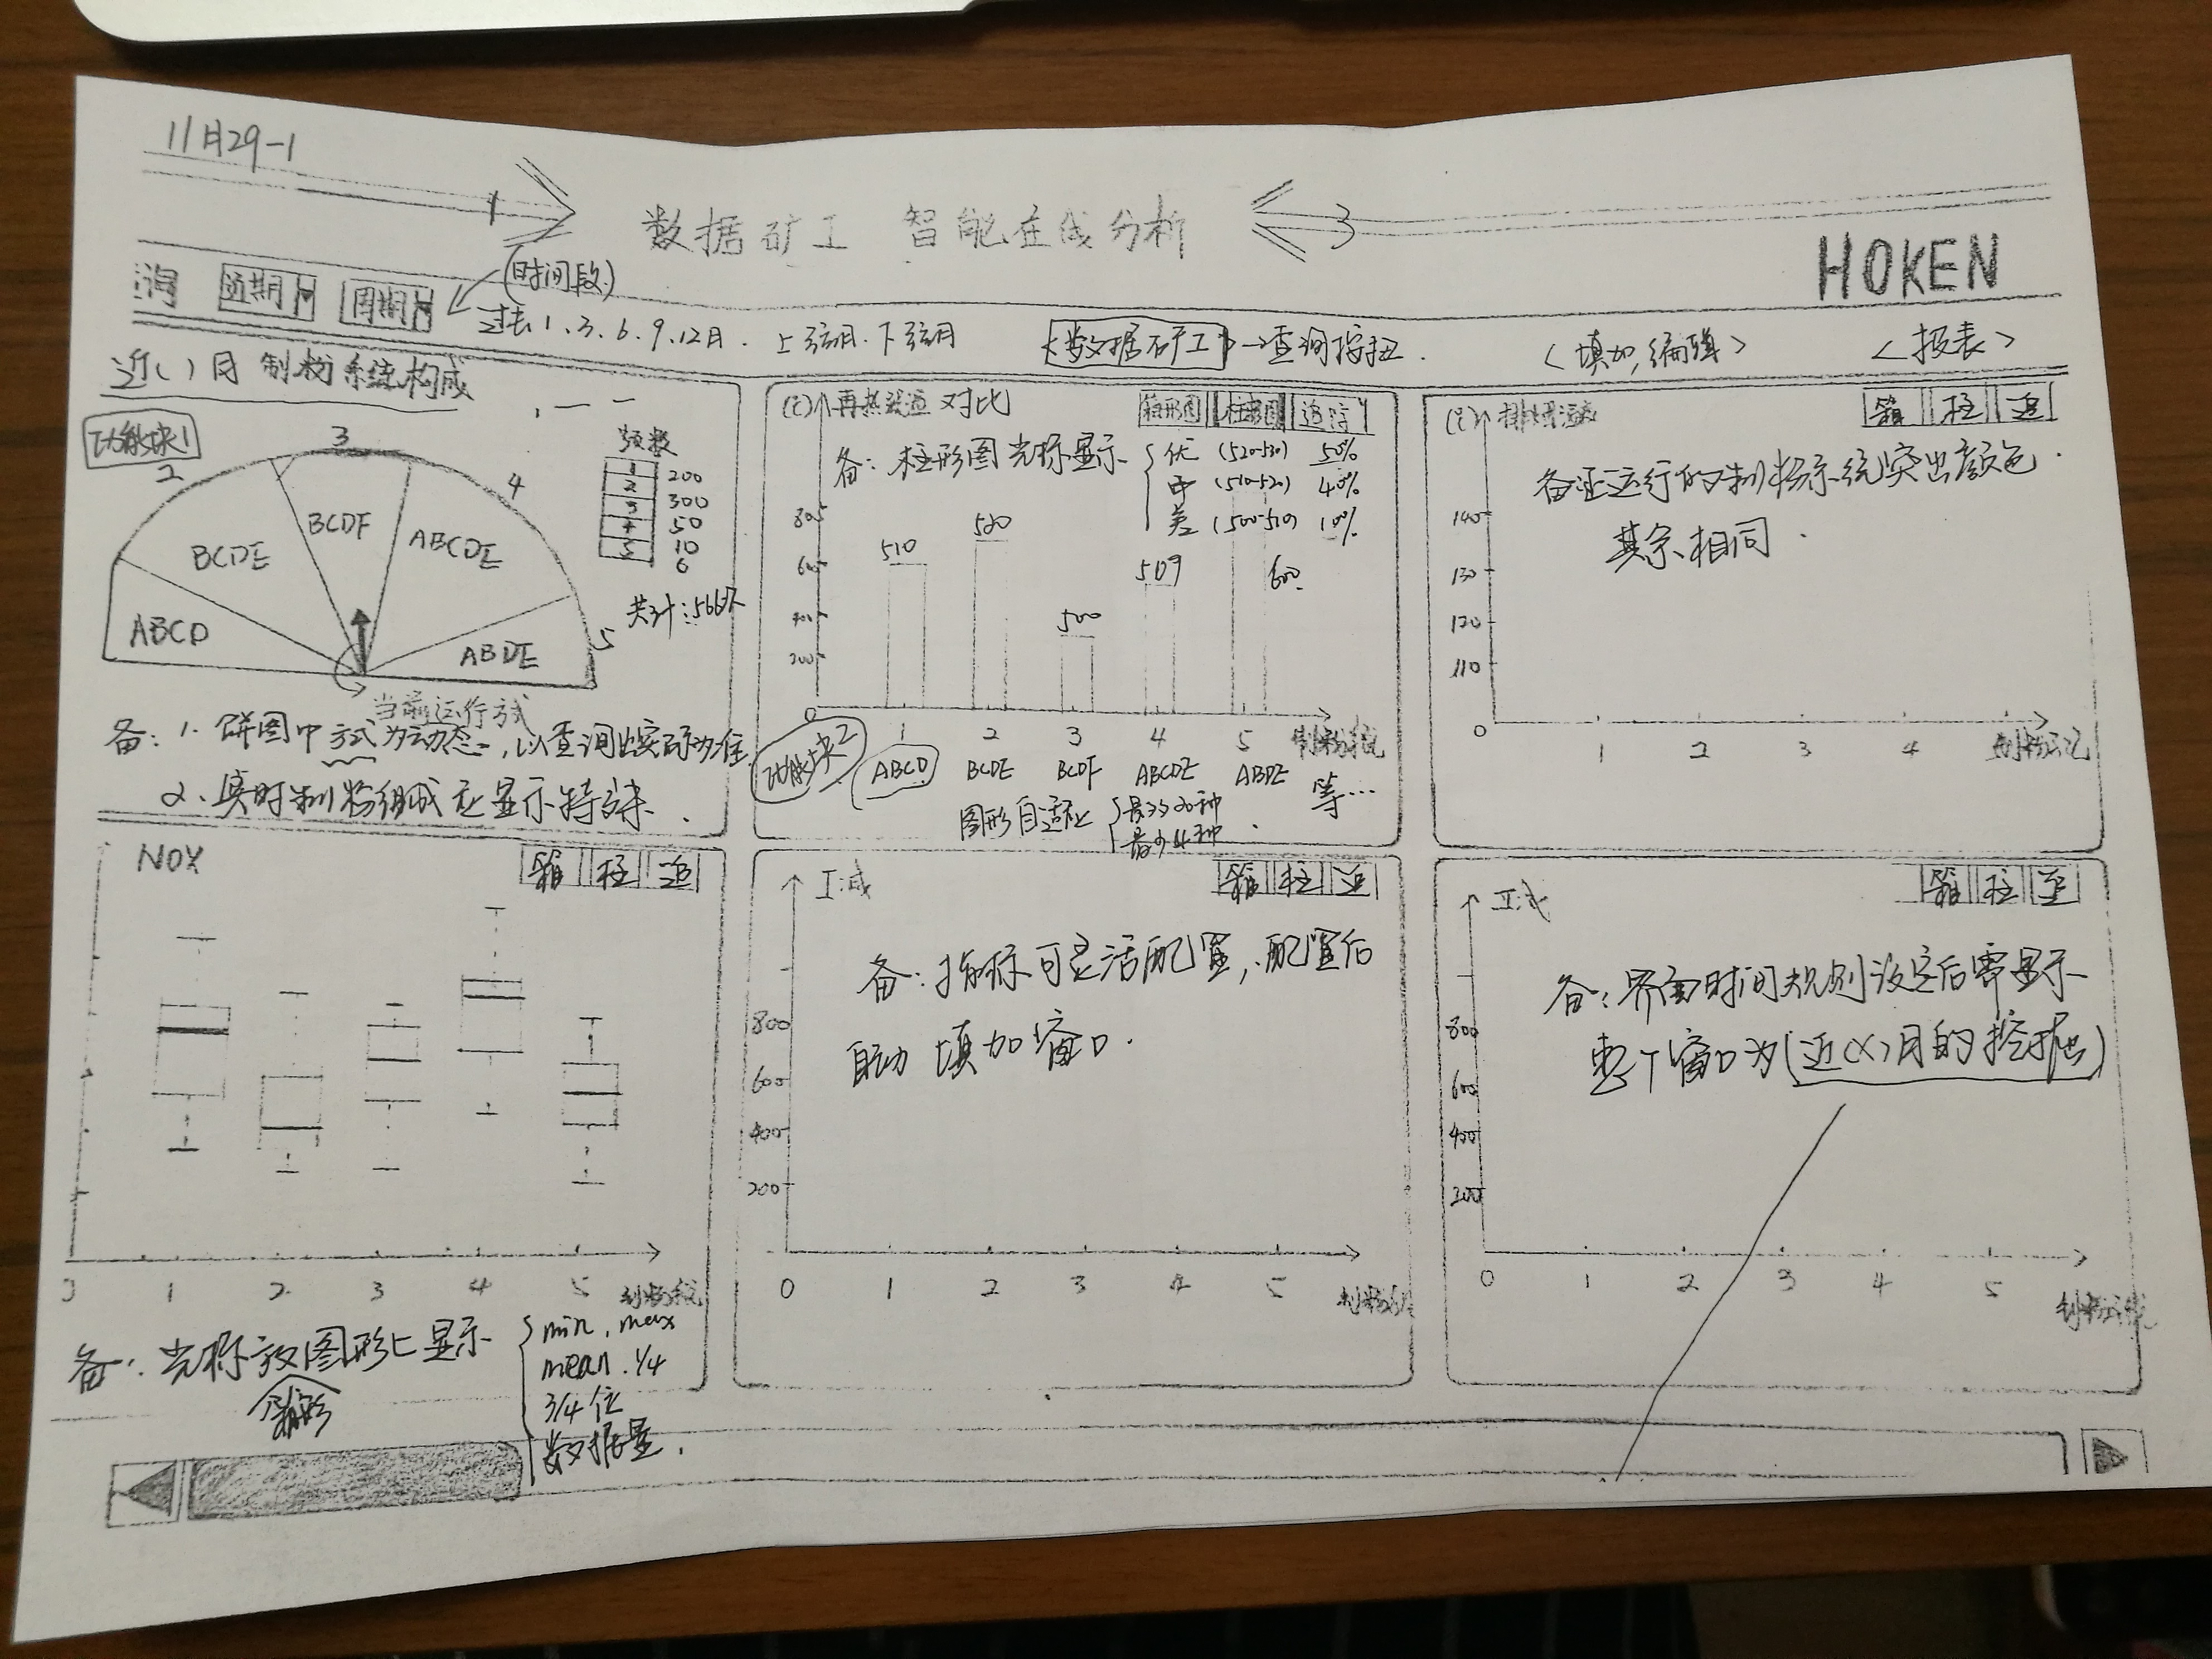 11月29-1
1
数据矿工 智能在线分析
3
HOKEN
询 近期 周期
(时间段)
过去1、3、6、9、12月. 上弦月、下弦月
<数据矿工>→查询按扭.
<填加,编辑>
<报表>
近( )月 制粉系统构成
功能块1
2 3 4 5
ABCD BCDE BCDF ABCDE ABDE
频数
1 200
2 300
3 50
4 10
5 6
共计:566次
当前运行方式
备:1、饼图中方式为动态,以查询出实际为准
2、实时制粉组成应显示特殊.
(℃) 再热汽温对比
箱形图 柱形图 追踪
备:柱形图光标显示
优 (520-530) 50%
中 (510-520) 40%
差 (500-510) 10%
800 600 400 200 0
510 520 500 509 600
1 2 3 4 5 制粉系统
功能块2
ABCD BCDE BCDF ABCDE ABDE 等…
图形自适应
最多20种
最少4种
(℃) 排烟温度
箱 柱 追
备注运行的制粉系统突出颜色.
其余相同.
140
130
120
110
0 1 2 3 4
NOX
箱 柱 追
1 2 3 4 5 制粉系统
备:光标放图形上显示
箱形
min, max
mean. 1/4
3/4位
数据量.
箱 柱 追
备:指标可灵活配置,配置后
自动填加窗口.
800
600
400
200
0 1 2 3 4 5 制粉系统
箱 柱 追
备:界面时间规则设定后需显示
整个窗口为(近(X)月的挖掘)
800
600
400
200
0 1 2 3 4 5 制粉系统